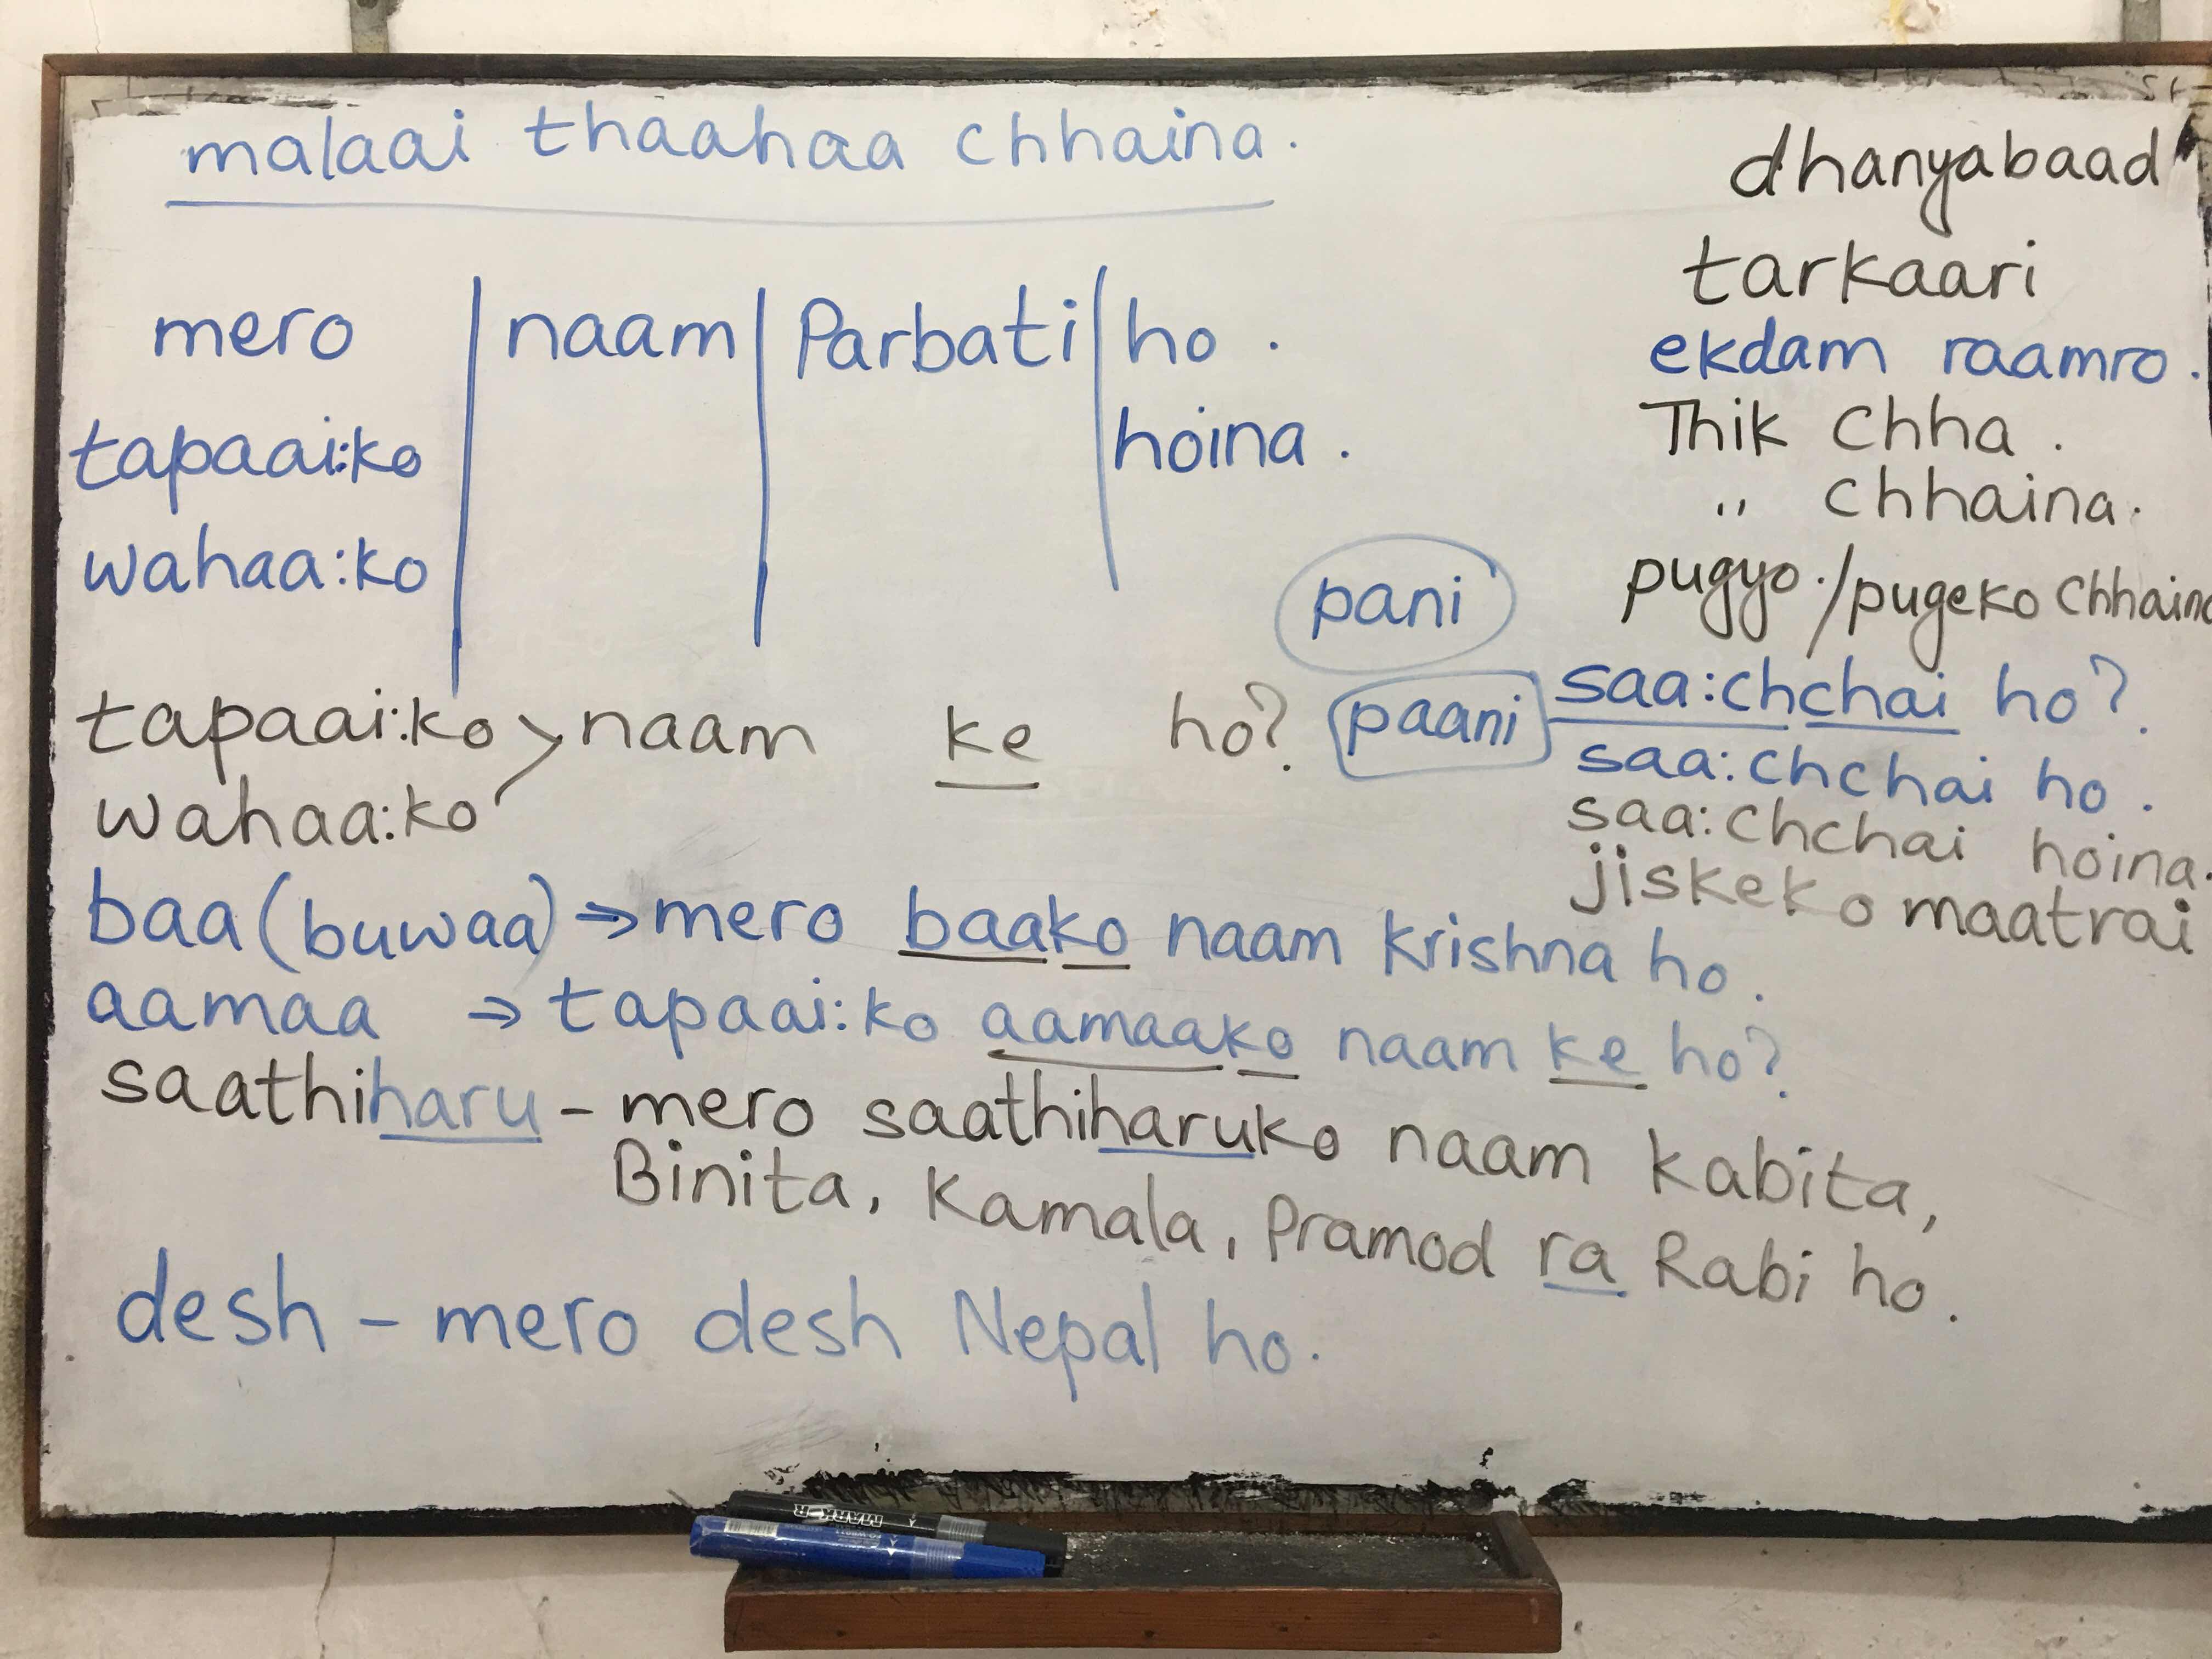 malaai thaahaa chhaina.
mero naam Parbati ho.
tapaai:ko hoina.
wahaa:ko
tapaai:ko naam ke ho?
wahaa:ko
baa (buwaa) ⇒ mero baako naam Krishna ho.
aamaa ⇒ tapaai:ko aamaako naam ke ho?
saathiharu - mero saathiharuko naam kabita,
Binita, Kamala, Pramod ra Rabi ho.
desh - mero desh Nepal ho.
pani
paani
dhanyabaad
tarkaari
ekdam raamro.
Thik chha.
" chhaina.
pugyo./pugeko chhaina
saa:chchai ho?
saa:chchai ho.
saa:chchai hoina.
jiskeko maatrai
MARKER